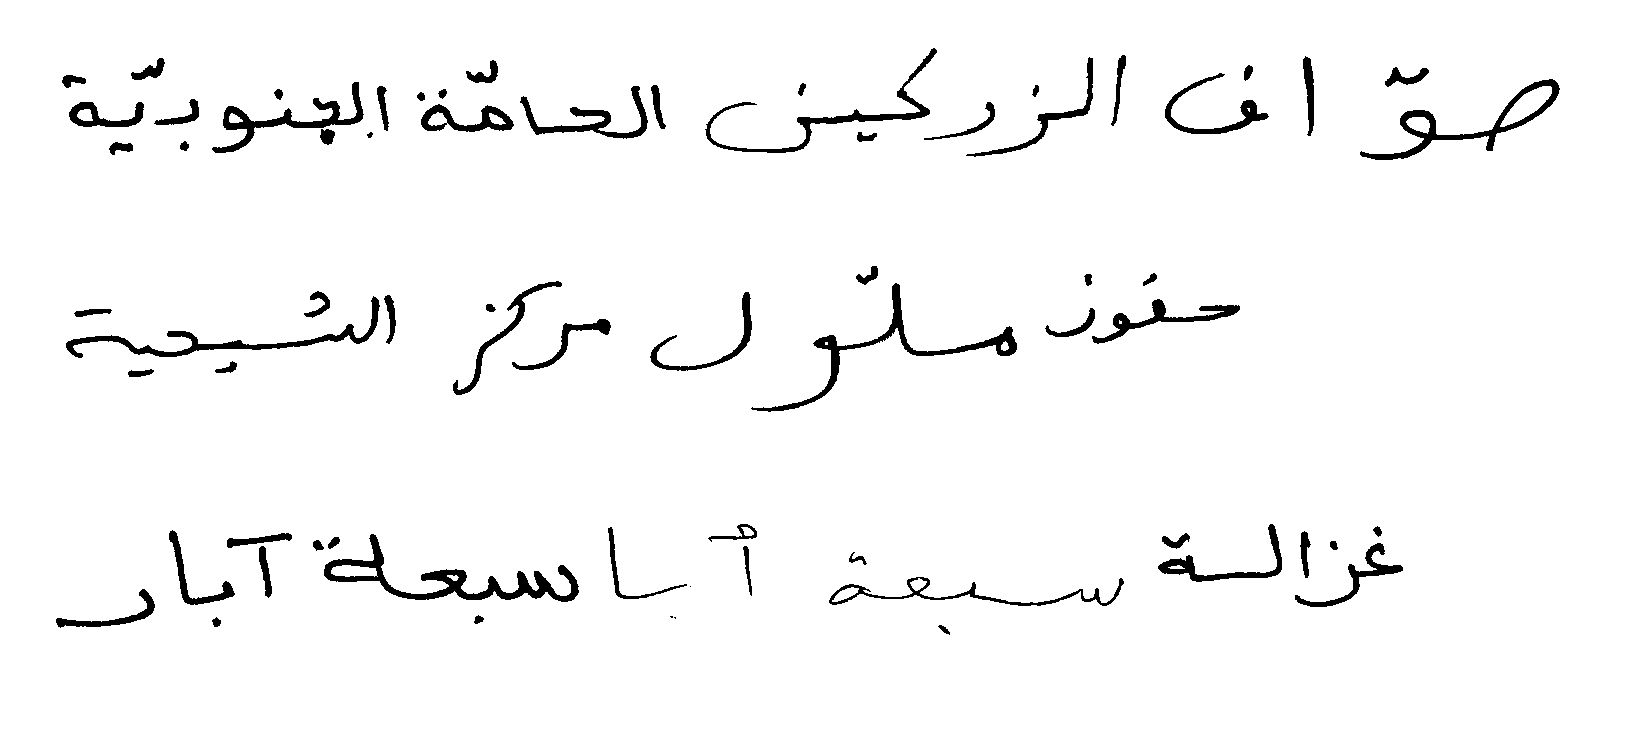 صوّاف الزركين الحامّة الجنوبيّة
حفوز ملّول مركز الشيحية
غزالة سبعة أبا سبعة آبار